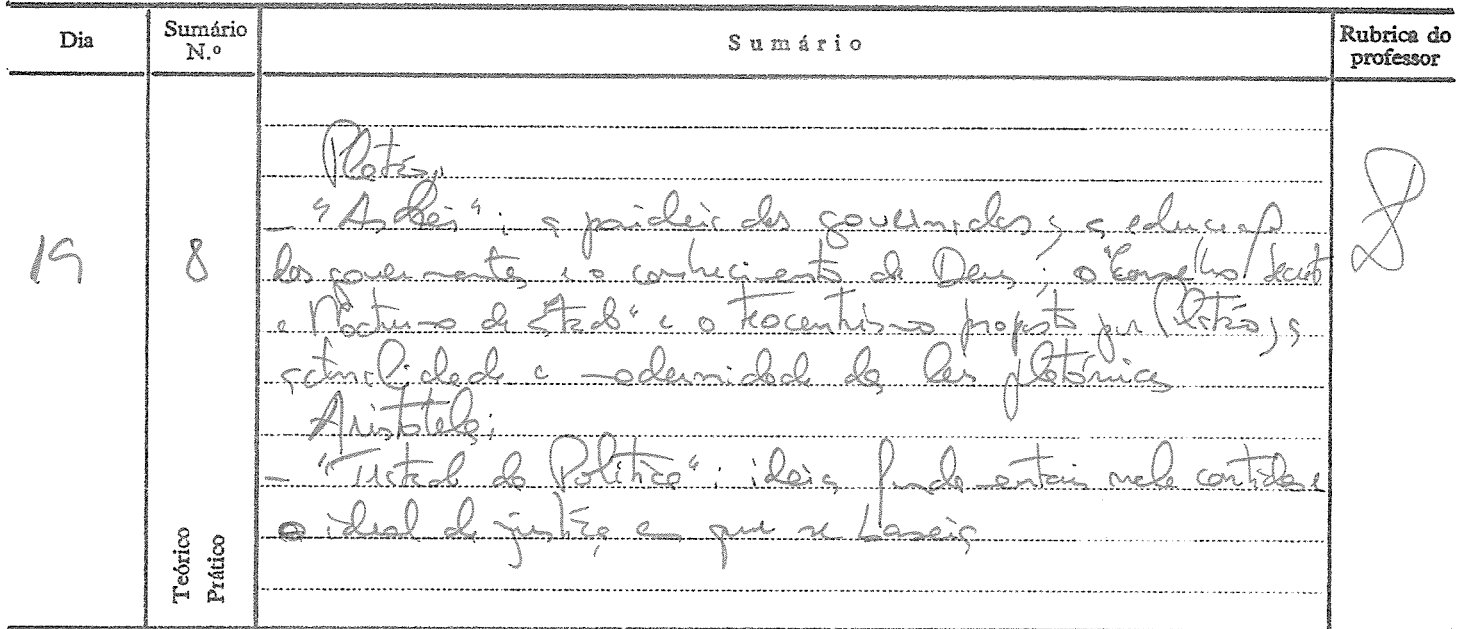 Dia
Sumário N.º
Sumário
Rubrica do professor
Platão,
- "As Leis": a paideia dos governados; a educação
19
8
dos governantes e o conhecimento de Deus; o "Conselho Secreto
e Nocturno do Estado" e o teocentrismo proposto por Platão; a
actualidade e modernidade das leis platónicas
Aristóteles:
- "Tratado da Política": ideias fundamentais nele contidas e
o ideal de justiça em que se baseia
Teórico
Prático